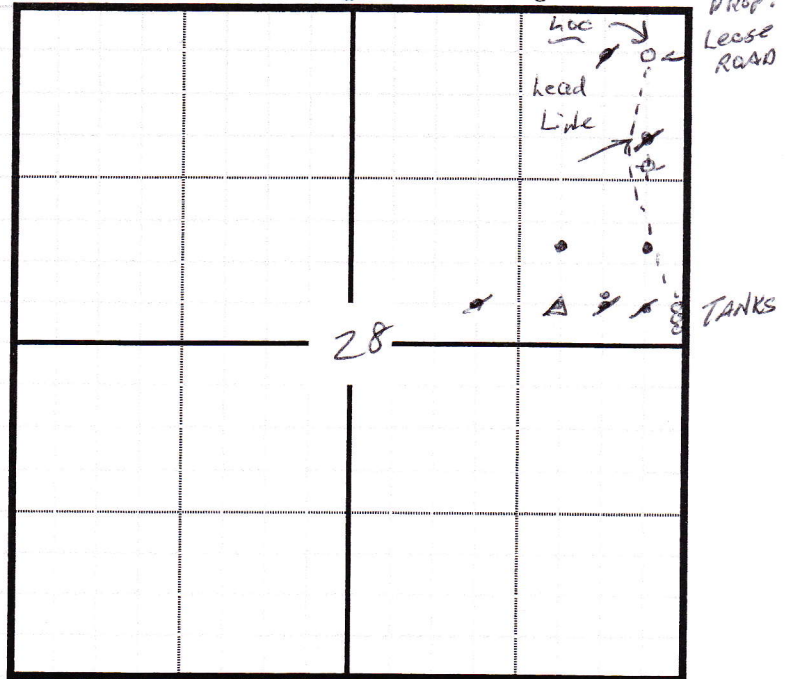 PROP.
Lease
ROAD
LOC
Lead
Line
TANKS
28